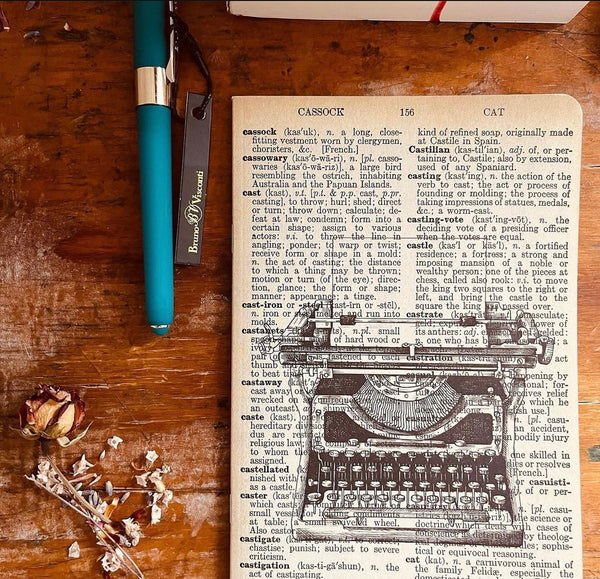 Bruno Visconti
CASSOCK 156 CAT
cassock (kas'uk), n. a long, close-
fitting vestment worn by clergymen,
choristers, &c. [French.]
cassowary (kas'ō-wā-ri), n. [pl. casso-
waries (kas'ō-wā-riz)], a large bird
resembling the ostrich, inhabiting
Australia and the Papuan Islands.
cast (kast), v.t. [p.t. & p.p. cast, p.pr.
casting], to throw; hurl; shed; direct
or turn; throw down; calculate; de-
feat at law; condemn; form into a
certain shape; assign to various
actors: v.i. to throw the line in
angling; ponder; to warp or twist;
receive form or shape in a mold:
n. the act of casting; the distance
to which a thing may be thrown;
motion or turn (of the eye); direc-
tion, glance; the form or shape;
manner; appearance; a tinge.
cast-iron or -steel (kast-īrn or -stēl),
n. iron or run into
molds.
castanets small
of hard wood or
castened to each
to beat time
castaway
cast away
wrecked on
an outcast
caste
hereditary
dus are
religious
to whom
assigned.
castellated
nished with
as a castle.
caster
small vessel for holding
at table; also small swivel wheel.
castigate to correct;
chastise; punish; subject to severe
criticism.
castigation (kas-ti-gā'shun), n. the
act of castigating.
kind of refined soap, originally made
at Castile in Spain.
Castilian (kas-til'yan), adj. of, or per-
taining to, Castile; also by extension,
used of any Spaniard.
casting (kast'ing), n. the action of the
verb to cast; the act or process of
founding or molding; the process of
taking impressions of statues, medals,
&c.; a worm-cast.
casting-vote (kast'ing-vōt), n. the
deciding vote of a presiding officer
when the votes are equal.
castle (kas'l or käs'l), n. a fortified
residence; a fortress; a strong and
imposing mansion of a noble or
wealthy person; one of the pieces at
chess, called also rook: v.i. to move
the king two squares to the right or
left, and bring the castle to the
square the king has passed over.
castrate emasculate;
geld; expurgate
its anthers: adj. gelded.
n. one who has
castration
casual
use.
an accident,
bodily injury
skilled in
or resolves
casuisti-
adj. or per-
n. [pl. casu-
doctrine which deals with cases
of conscience
or equivocal reasoning.
cat (kat), n. a carnivorous animal of
the family Felidæ, especially in the